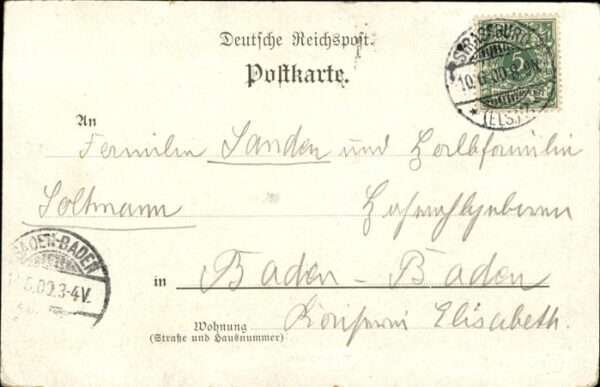 Deutsche Reichspost.
Postkarte.
STRASSBURG
10.6.00.8-
* (ELS.)
5
An
Familie Sanden und
Soltmann
BADEN-BADEN
6.00.3-4V.
in Baden-Baden
Wohnung
(Straße und Hausnummer)
Elisabeth.